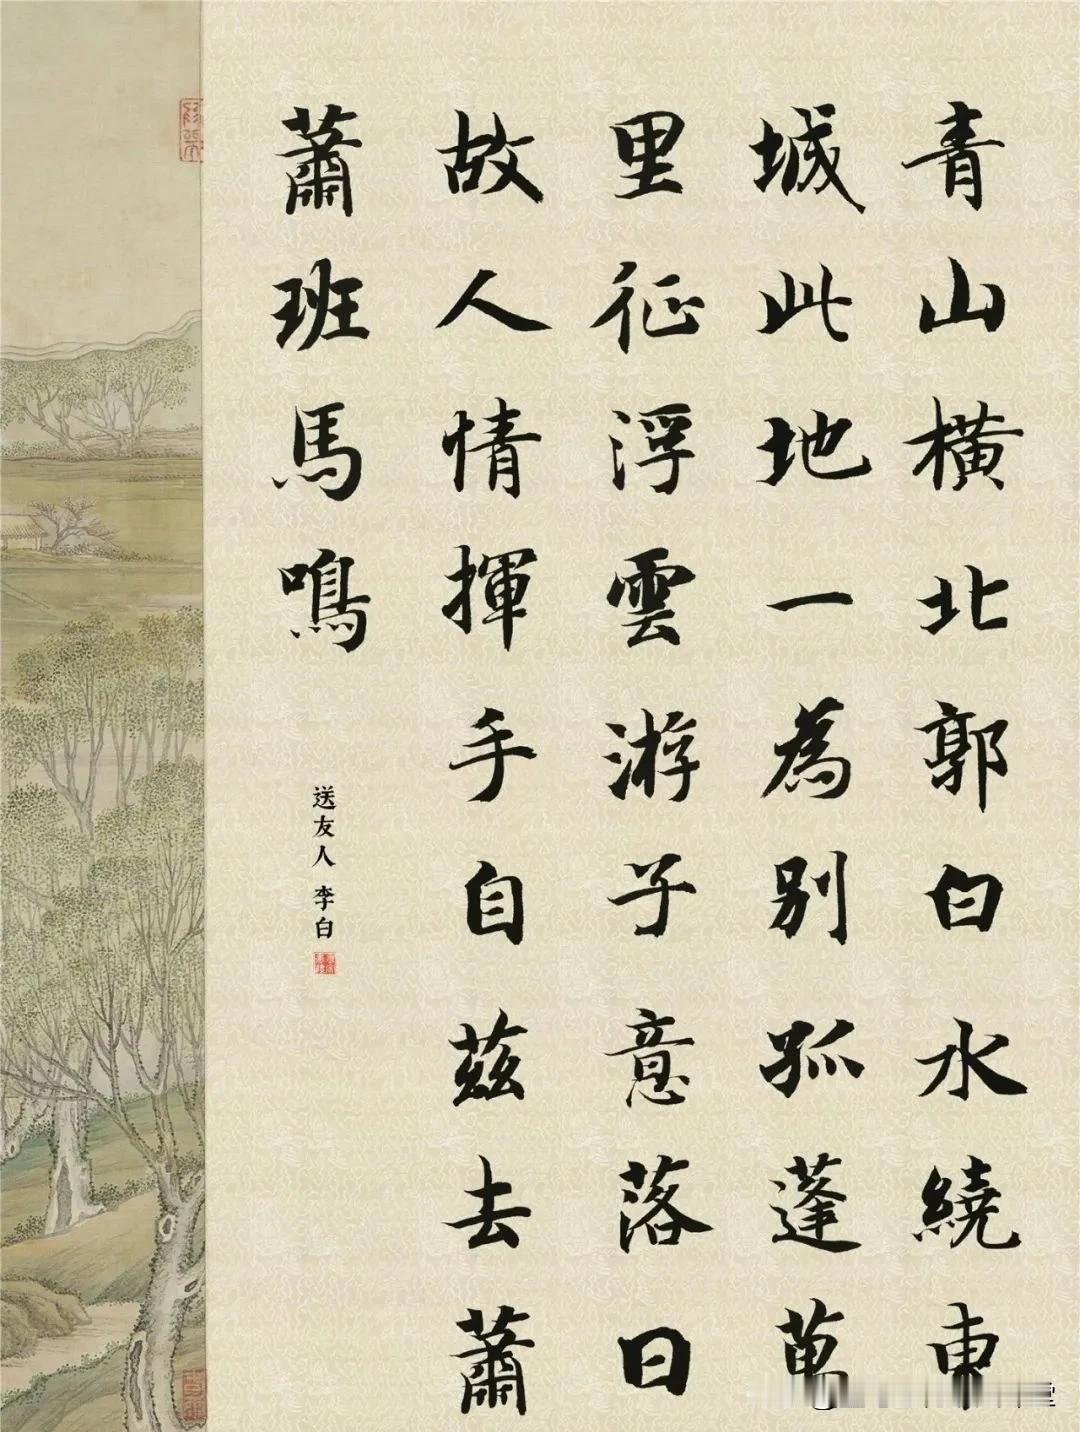 青山橫北郭白水繞東
城此地一為別孤蓬萬
里征浮雲游子意落日
故人情揮手自茲去蕭
蕭班馬鳴
送友人 李白